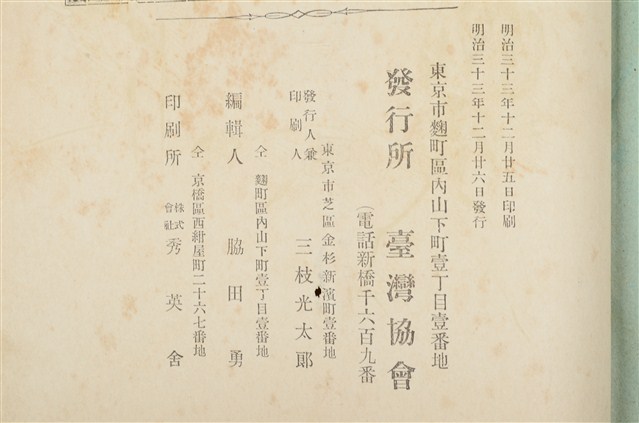 明治三十三年十二月廿五日印刷
明治三十三年十二月廿六日發行
東京市麴町區內山下町壹丁目壹番地
發行所 臺灣協會
(電話新橋千六百九番
東京市芝區金杉新濱町壹番地
發行人兼印刷人 三枝光太郎
仝 麴町區內山下町壹丁目壹番地
編輯人 脇田勇
仝 京橋區西紺屋町二十六七番地
印刷所 株式會社 秀英舍